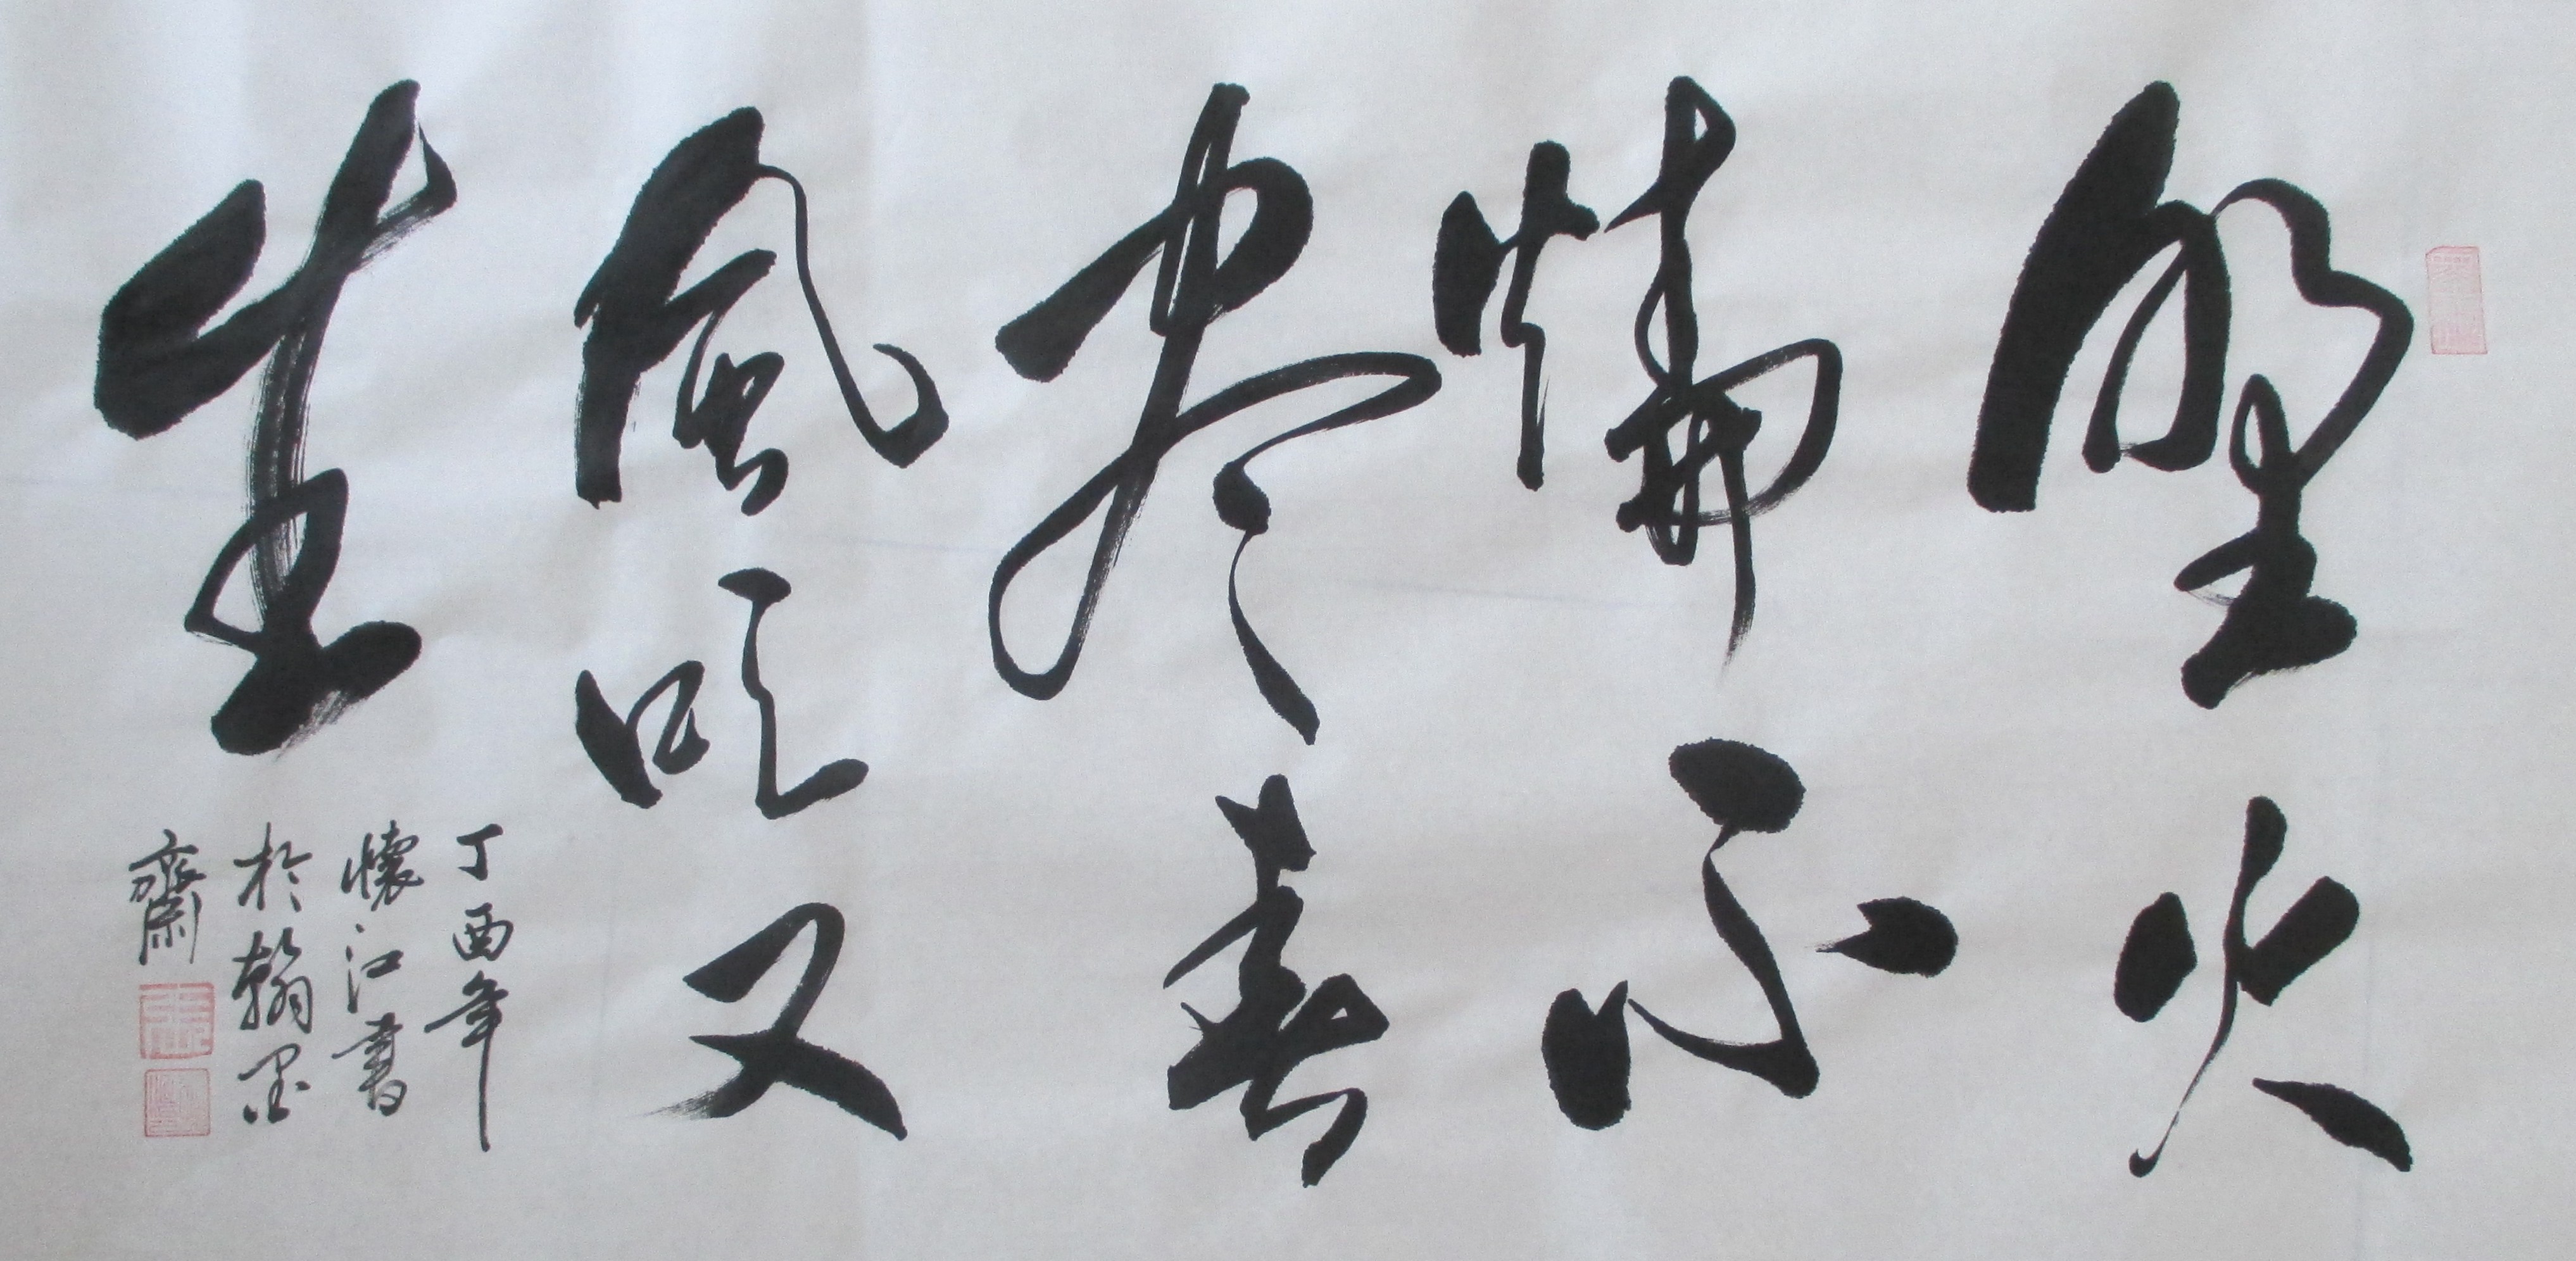 野火
燒不
盡春
風吹又
生
丁酉年
懷江書
於翰墨
齋